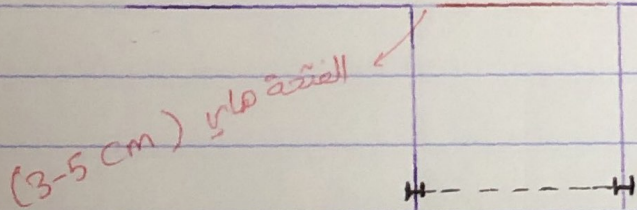 الفتحة هاي (3-5 cm)